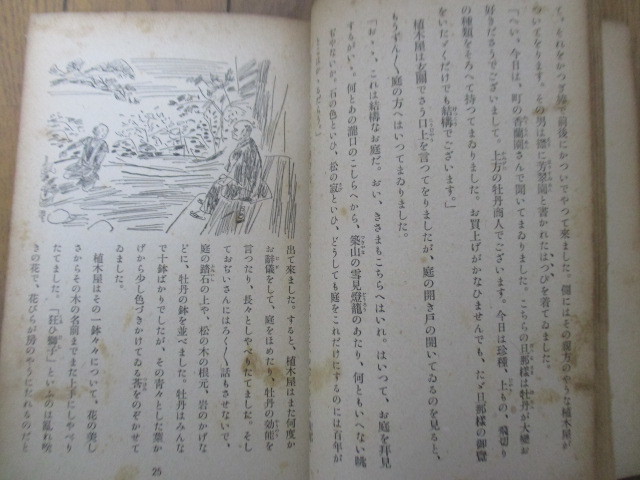 と、それをかつぎ棒で前後にかついでやつて來ました。側にはその親方のやうな植木屋が
ついてをります。その男は襟に芳翠園と書かれたはつぴを着てゐました。
「へい、今日は、町の香蘭園さんで聞いてまゐりました。こちらの旦那樣は牡丹が大變お
好きださうでございまして。上方の牡丹商人でございます。今日は珍種、上もの、飛切り
の種類をそろへて持つてまゐりました。お買上げがかなひませんでも、たゞ旦那樣の御覽
をいたゞくだけでも結構でございます。」
植木屋は玄關でさう口上を言つてをりましたが、庭の開き戸の開いてゐるのを見ると、
もうずん〳〵庭の方へはいつてまゐりました。
「おゝ、これは結構なお庭だ。おい、きさまもこちらへはいれ。はいつて、お庭を拜見
するがいい。何とりの瀧口のこしらへから、築山の雪見燈籠のあたり、何ともいへない眺
石の色といひ、松の寂といひ、どうしても庭をこれだけにするのには百年が
出て來ました。すると、植木屋はまた何度か
お辭儀をして、庭をほめたり、牡丹の効能を
言つたり、長々としやべりたてました。そし
ておぢいさんにはろく〳〵話もさせないで、
庭の踏石の上や、松の木の根元、岩のかげな
どに、牡丹の鉢を並べました。牡丹はみんな
で十鉢ばかりでしたが、その青々とした葉か
げから少し色づきかけてゐる莟をのぞかせて
ゐました。
植木屋はその一鉢々々について、花の美し
さからその木の名前までまた上手にしやべり
たてました。「狂ひ獅子」といふのは亂れ咲
きの花で、花びらが房のやうにたれるのだと
25